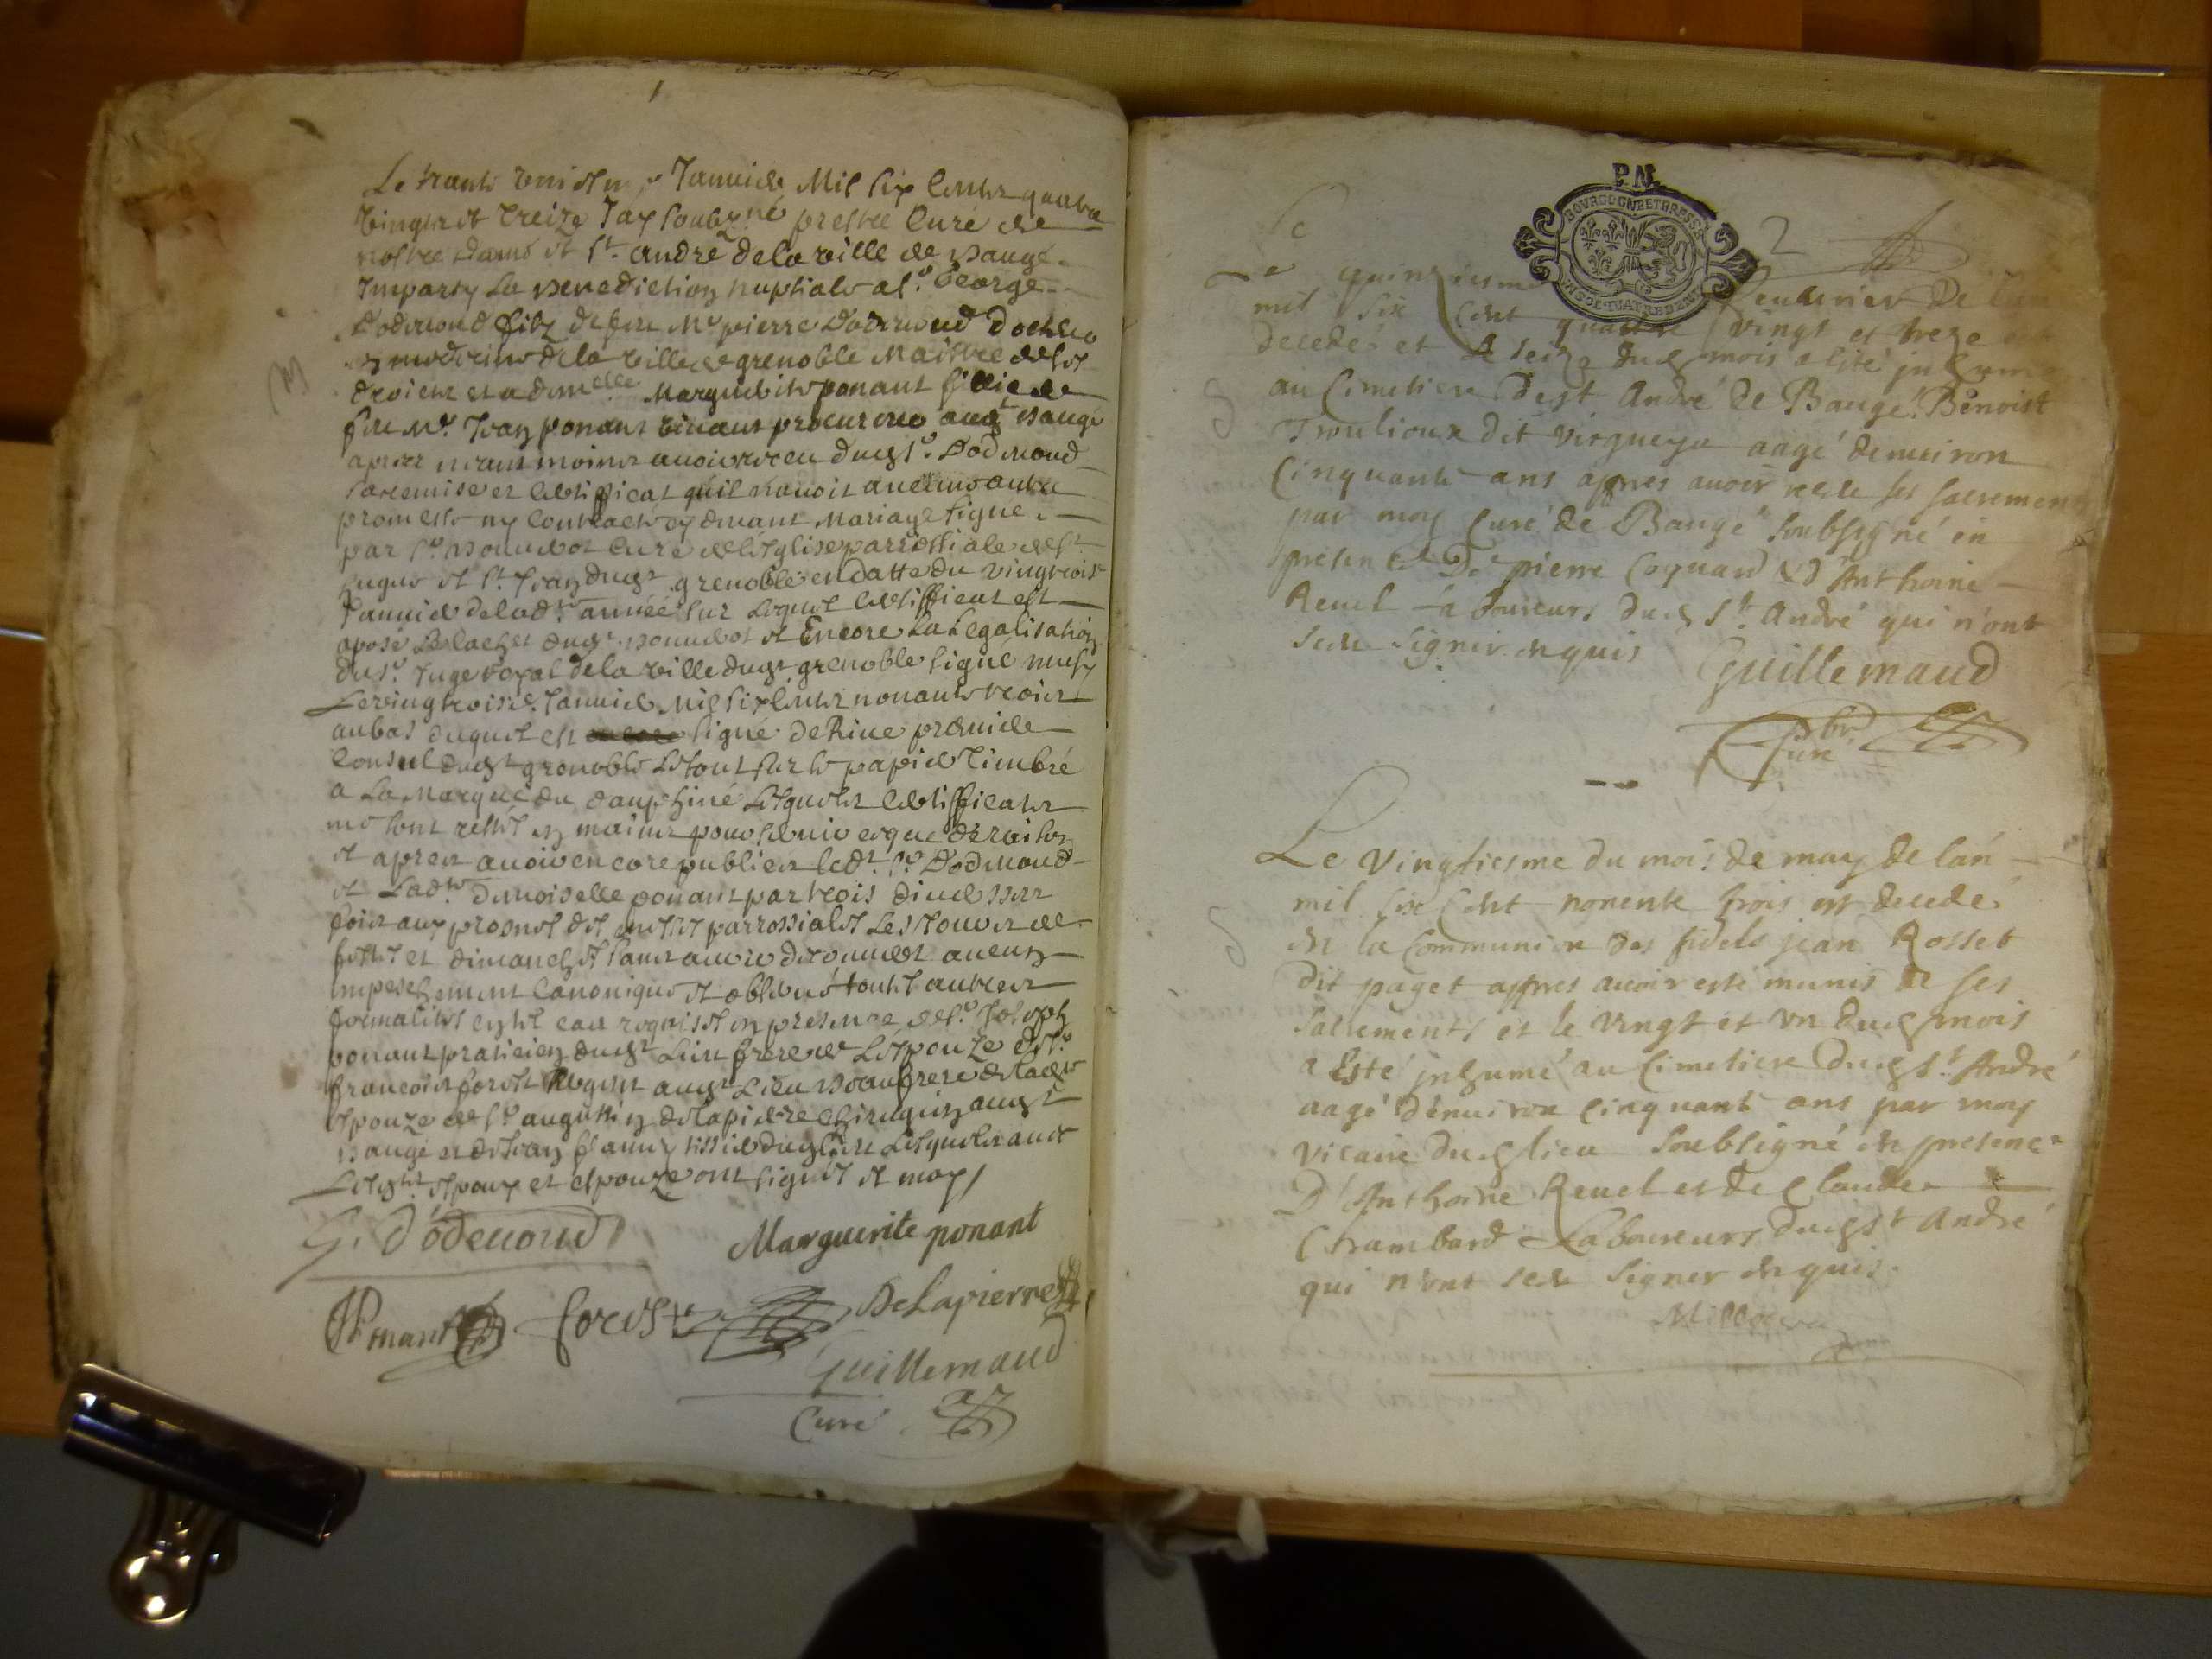 Le trante uniesme Januier Mil six centz quatre
vingtz et treize Jay soubzné prestre Curé de
nostre dame et St. andré de la ville de Baugé
Imparty La Benediction nuptiale a Sr. George
Dodeuoud filz de feu Mr pierre Dodeuoud docteur
en medecine de la ville de grenoble Maistre
droictz et a demelle Marguerite ponant fillie de
feu Mr. Jean ponant viuant procureur aud. Baugé
aprez neantmoins auoir receu dud Sr. Dodeuoud
remise et certifficat quil nauoit aucune autre
promesse ny contractz cy deuant Mariage signé
par Sr. curé de lesglise parrossiale de St.
hugue et St. Jean dudt grenoble en datte du vingtrois
Januier de lad. année sur lequel certifficat est
aposé Le cachet dudt et Encore La Legalisation
du Sr. Juge royal de la ville dudt grenoble signé
Le vingtrois Januier Mil six centz nonante trois
au bas duquel est signé de Riue premier
Consul dudt grenoble Le tout sur le papier Timbré
a La Marque du dauphiné Lesquelz certifficatz
me sont resté en mains pour seruir ce que de raison
et aprez auoir encore publier led. Sr. Dodeuoud
et Ladte. demoiselle ponant par trois diuerses
fois aux prosnes des messes parrossiales Les jours de
festes et dimanches sans auoir decouuert aucun
empeschement Canonique et obserué toutes autres
formalités en tel cas requises en presence de Sr. Joseph
ponant praticien dudt Lieu frere de Lespouze
francois forest aud Lieu Beaufrere de lade
espouze de Sr augustin delapierre chirugien audt
Baugé et de Jean dud Lieu Lesquelz auec
Lesdt. espoux et espouze ont signés et moy
G. Dodeuoud Marguerite ponant
JPonant forest DeLapierre
Guillemaud
Curé
P.N.
BOURGOGNE ET BRESSE
2
Le
Le quinziesme feuurier de lan
mil six cent quattre vingt et treze est
decedé et le seize dud mois a esté inhumé
au Cimetiere de st André de Baugé Benoist
Troulioux dit virgueya aagé denuiron
Cinquante ans apres auoir receu ses sacrements
par moy Curé de Baugé soubsigné en
presence De pierre Coquard et d'Anthoine
Reuel laboureurs dud St. André qui n'ont
sceu signer enquis Guillemaud
Pbr Curé
Le vingtiesme du mois de may de lan
mil six cent nonente trois est decedé
en la Communion des fidels jean Rosset
dit paget apres auoir esté munis de ses
Sacrements et le vingt et vn dud mois
a Esté inhumé au Cimetiere dud St. André
aagé d'enuiron cinquante ans par moy
vicaire dud lieu soubsigné en presence
D'Anthoine Reuel et de Claude
Chambard Laboureurs dud St André
qui n'ont sceu signer enquis.